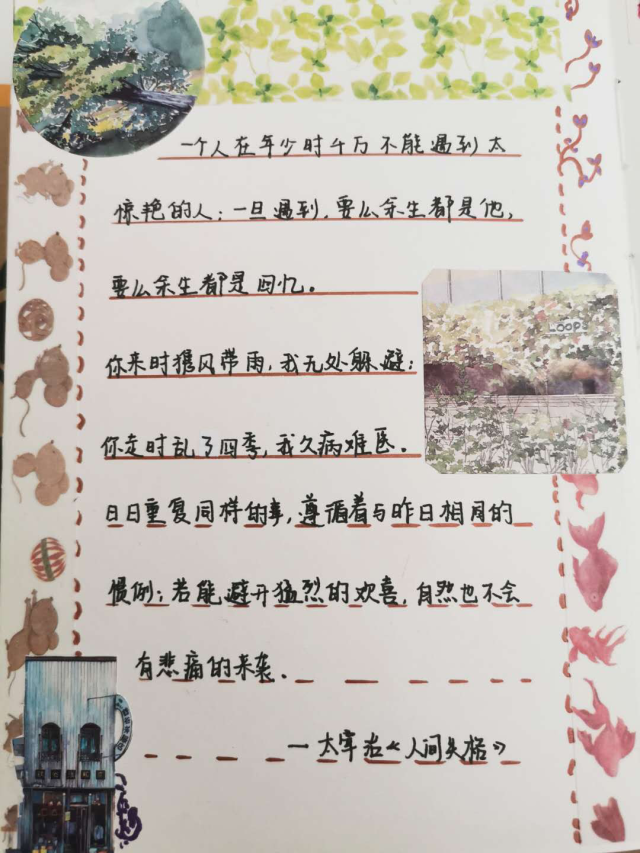 一个人在年少时千万不能遇到太
惊艳的人：一旦遇到，要么余生都是他，
要么余生都是回忆。
你来时携风带雨，我无处躲避；
你走时乱了四季，我久病难医。
日日重复同样的事，遵循着与昨日相同的
惯例；若能避开猛烈的欢喜，自然也不会
有悲痛的来袭．
一太宰治《人间失格》
Loop